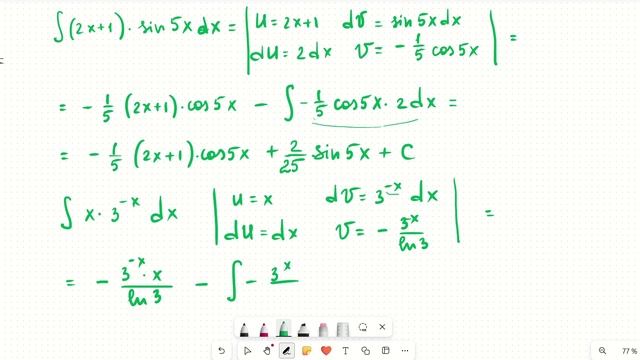 ∫(2x+1)·sin5xdx = | u=2x+1 dv=sin5xdx
du=2dx v=-1/5 cos5x | =
= -1/5 (2x+1)·cos5x - ∫-1/5 cos5x·2dx =
= -1/5 (2x+1)·cos5x + 2/25 sin5x + C
∫ x·3^-x dx | u=x dv=3^-x dx
du=dx v=-3^x/ln3 | =
= - 3^-x·x/ln3 - ∫ - 3^x
77 %